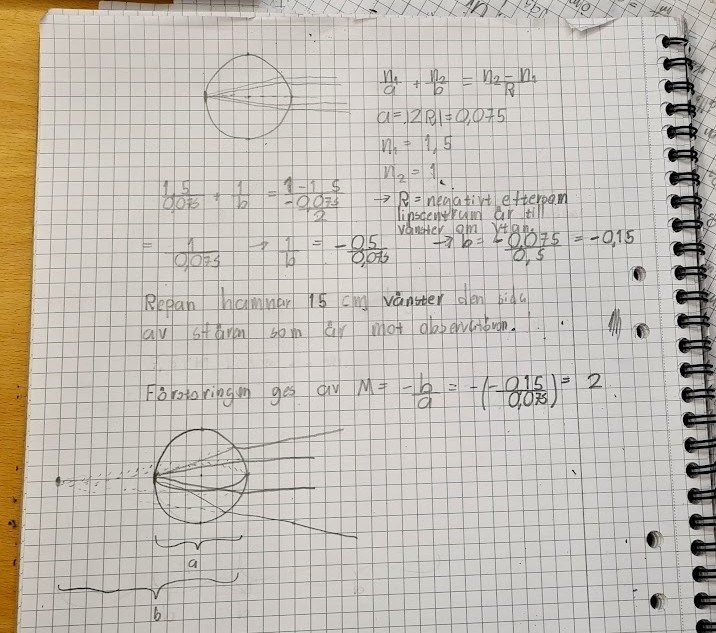 n₁/a + n₂/b = n₂-n₁/R
a=|2R|=0,075
n₁ = 1,5
n₂ = 1
1,5/0,075 + 1/b = 1-1,5/-0,075/2
→ R = negativt eftersom
linscentrum är till
vänster om ytan.
= 1/0,075 → 1/b = -0,5/0,075 → b = -0,075/0,5 = -0,15
Repan hamnar 15 cm vänster den sida
av som är mot observatören.
Förstoringen ges av M = -b/a = -(-0,15/0,075) = 2
a
b